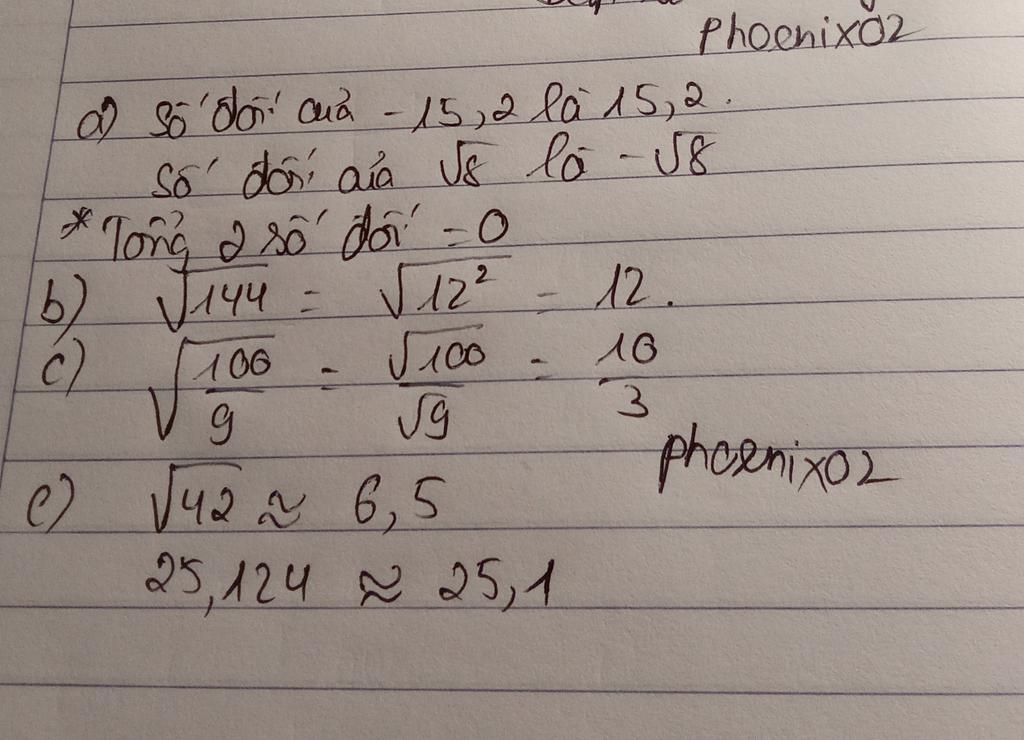 PhoenixO2
a) Số đối của - 15,2 là 15,2.
Số đối của √8 là - √8
* Tổng 2 số đối = 0
b) √144 = √12² = 12.
c) √(100/9) = √100/√9 = 10/3
phoenixO2
e) √42 ≈ 6,5
25,124 ≈ 25,1